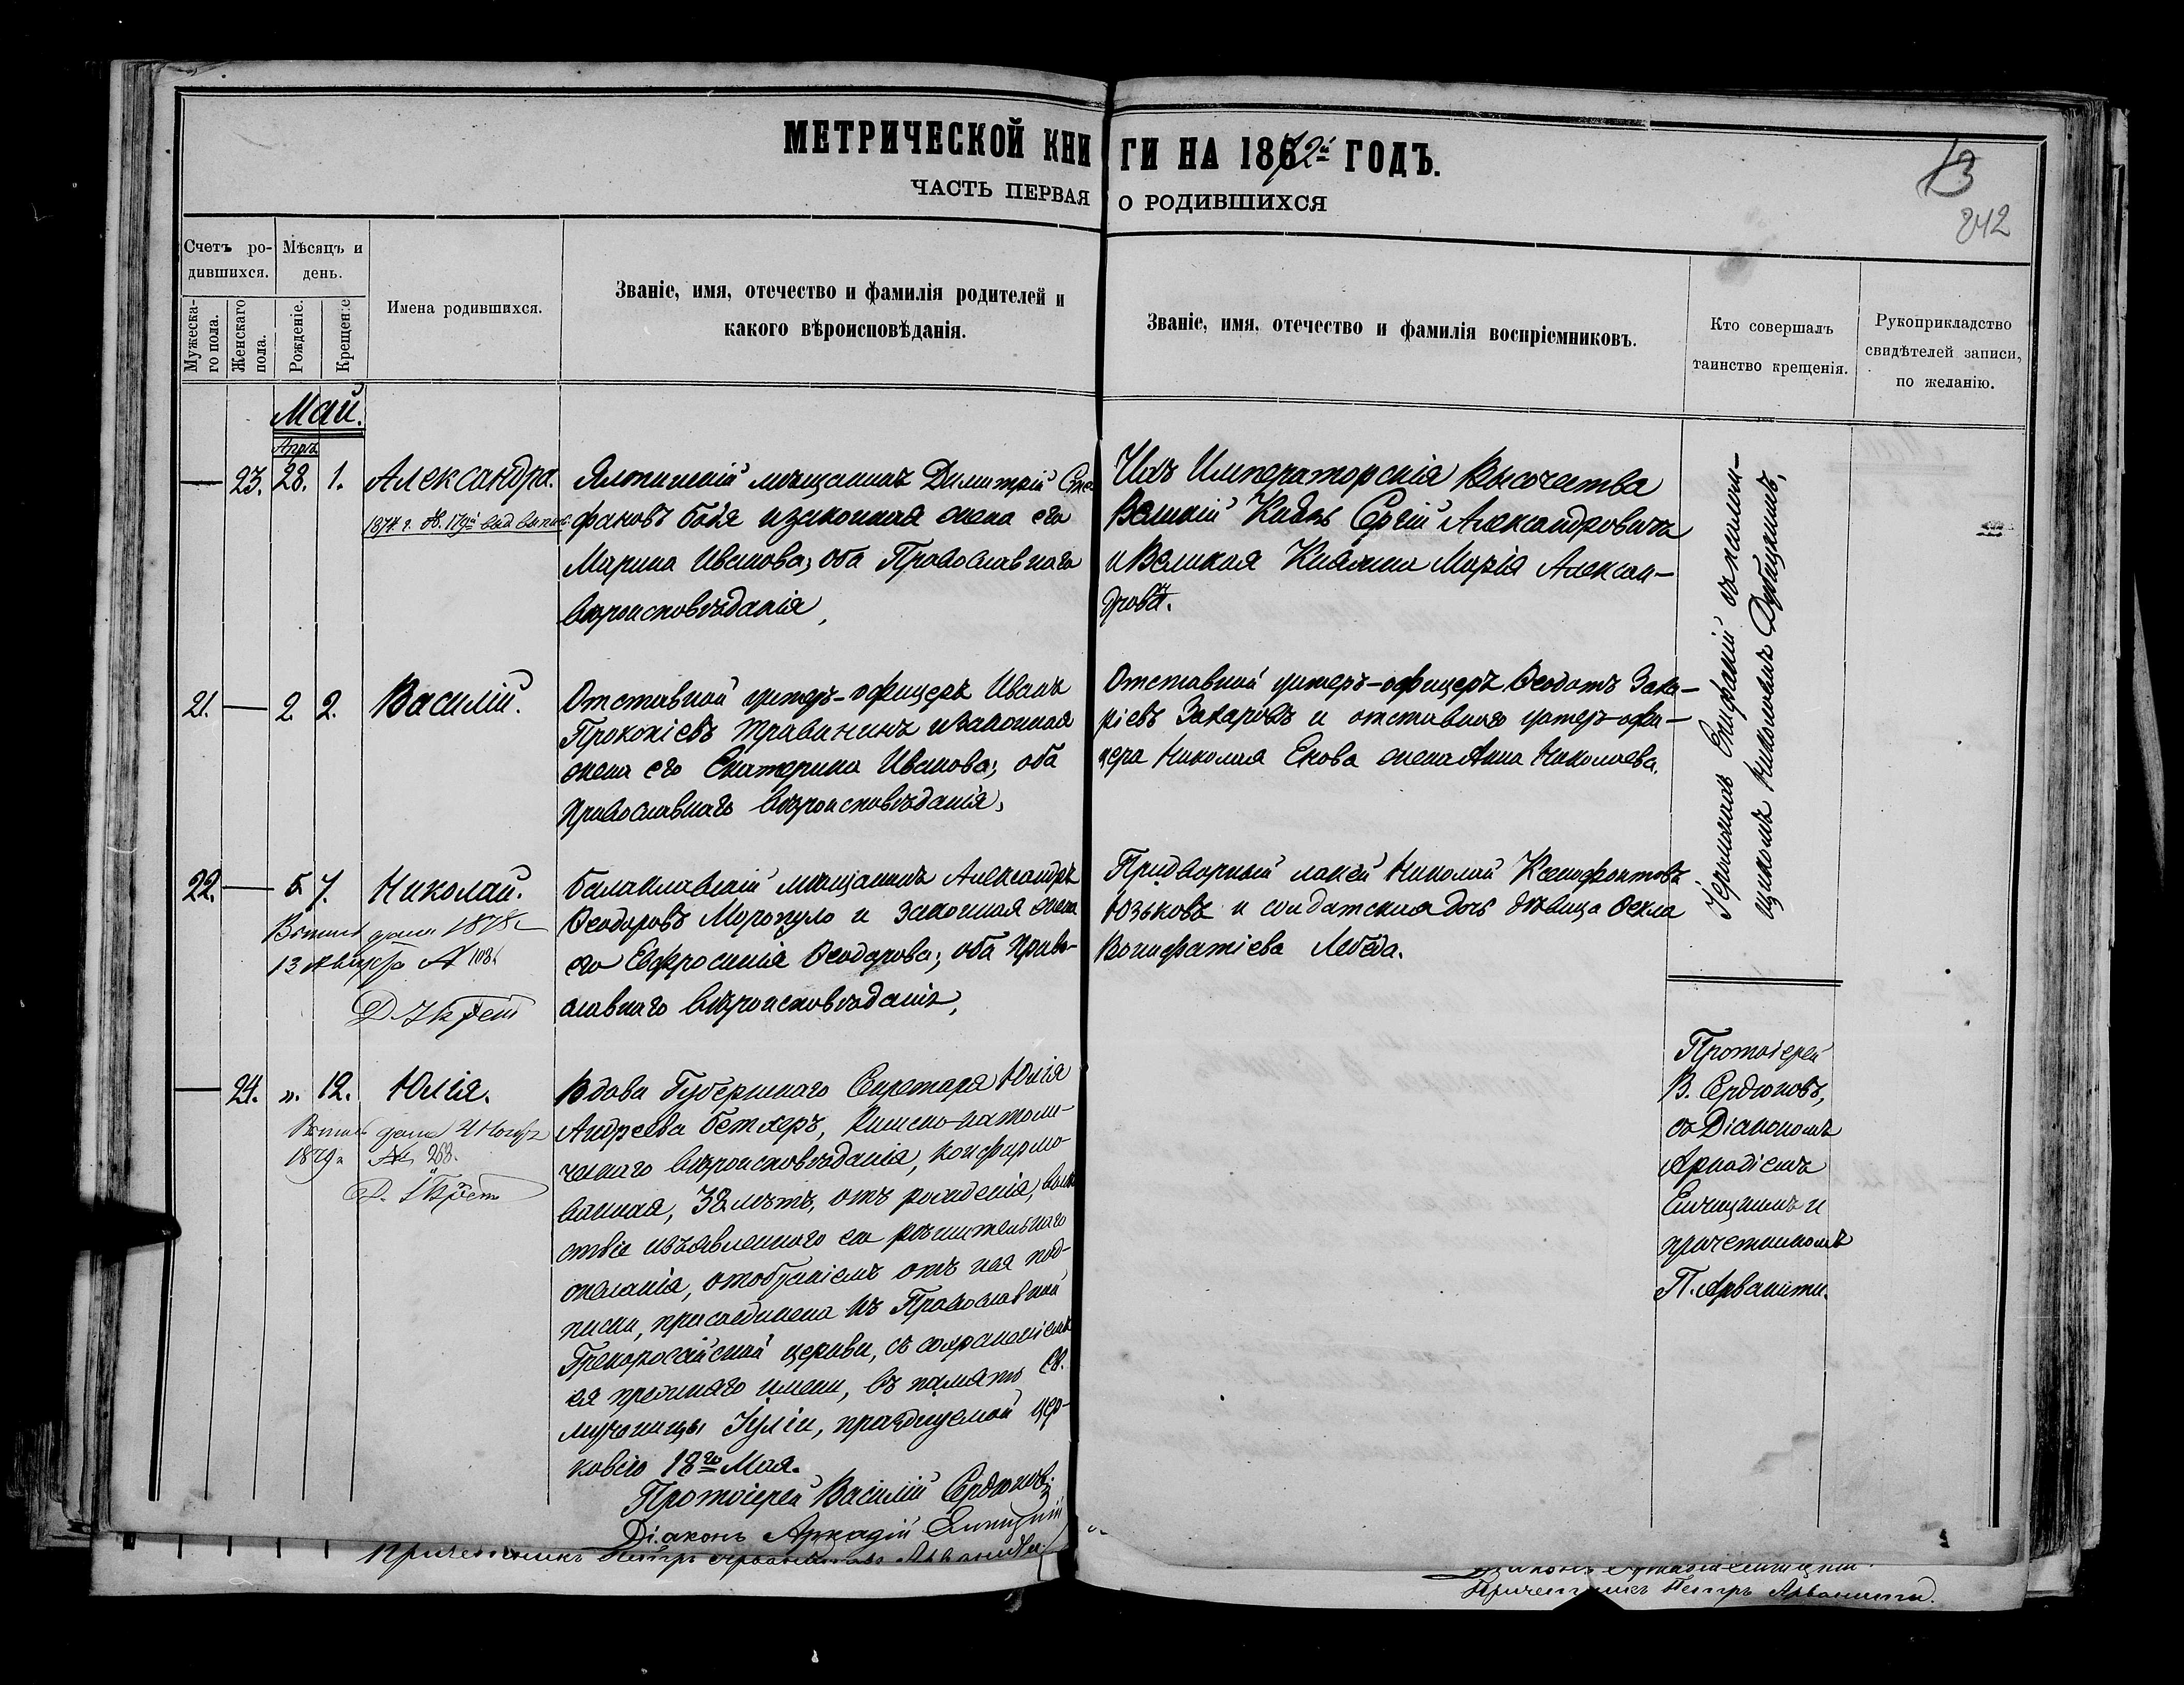 МЕТРИЧЕСКОЙ КНИГИ НА 1872й ГОДЪ.
ЧАСТЬ ПЕРВАЯ О РОДИВШИХСЯ
13
242
Счетъ родившихся.
Мужескаго пола.
Женскаго пола.
Мѣсяцъ и день.
Рожденіе.
Крещеніе
Имена родившихся.
Званіе, имя, отечество и фамилія родителей и
какого вѣроисповѣданія.
Званіе, имя, отечество и фамилія воспріемниковъ.
Кто совершалъ
таинство крещенія.
Рукоприкладство
свидѣтелей записи,
по желанію.
Май.
Апрѣ
— 23. 28. 1. Александра.
1874 г. №. 179й выд.
Ялтинскій мѣщанинъ Димитрій Сте-
фановъ Бабя и законная жена его
Марина Иванова; оба Православнаго
вѣроисповѣданія,
Ихъ Императорскія Высочества
Великій Князь Сергій Александровичъ
и Великая Княжна Марія Алексан-
дровна.
21. — 2. 2. Василій.
Отставной унтеръ-офицеръ Иванъ
Прокопіевъ Травинъ и законная
жена его Екатерина Иванова; оба
Православнаго вѣроисповѣданія,
Отставной унтеръ-офицеръ Ѳеодотъ Заха-
ріевъ Захаровъ и отставного унтеръ-офи-
цера Николая Енова жена Анна Николаева.
Іеромонахъ Епифаній съ псалом-
щикомъ Николаемъ Дубицкимъ,
22. — 5. 7. Николай.
дана 1878 г
13 Августа №
Балаклавскій мѣщанинъ Александръ
Ѳеодоровъ Моропуло и законная жена
его Евфросинія Ѳеодорова; оба Право-
славнаго вѣроисповѣданія,
Придворный лакей Николай Ксенофонтовъ
Юзьковъ и солдатская дочь дѣвица Ѳекла
Вонифатіева Лебеда.
— 24. „. 12. Юлія.
дана 4 Ноября
1879 г № 268.
Вдова Губернскаго Секретаря Юлія
Андреева Бетхеръ, Римско-католи-
ческаго вѣроисповѣданія, конфирмо-
ванная, 38 лѣтъ, отъ рожденія, вслѣд
ствіе изъявленнаго ею рѣшительнаго
желанія, отобраніемъ отъ нея под-
писки, присоединена къ Православной
Грекороссійской церкви, съ сохраненіемъ
ея прежняго имени, въ память Св.
мученицы Іуліи, празднуемой цер-
ковію 18го Мая.
Протоіерей
В. Сердюковъ,
съ Діакономъ
Аркадіемъ
Епицкимъ и
причетникомъ
П. Арванити.
Протоіерей Василій Сердюковъ;
Діаконъ Аркадій
Причетникъ Петръ Арванити
Діаконъ Аркадій
Причетникъ Петръ Арванити.